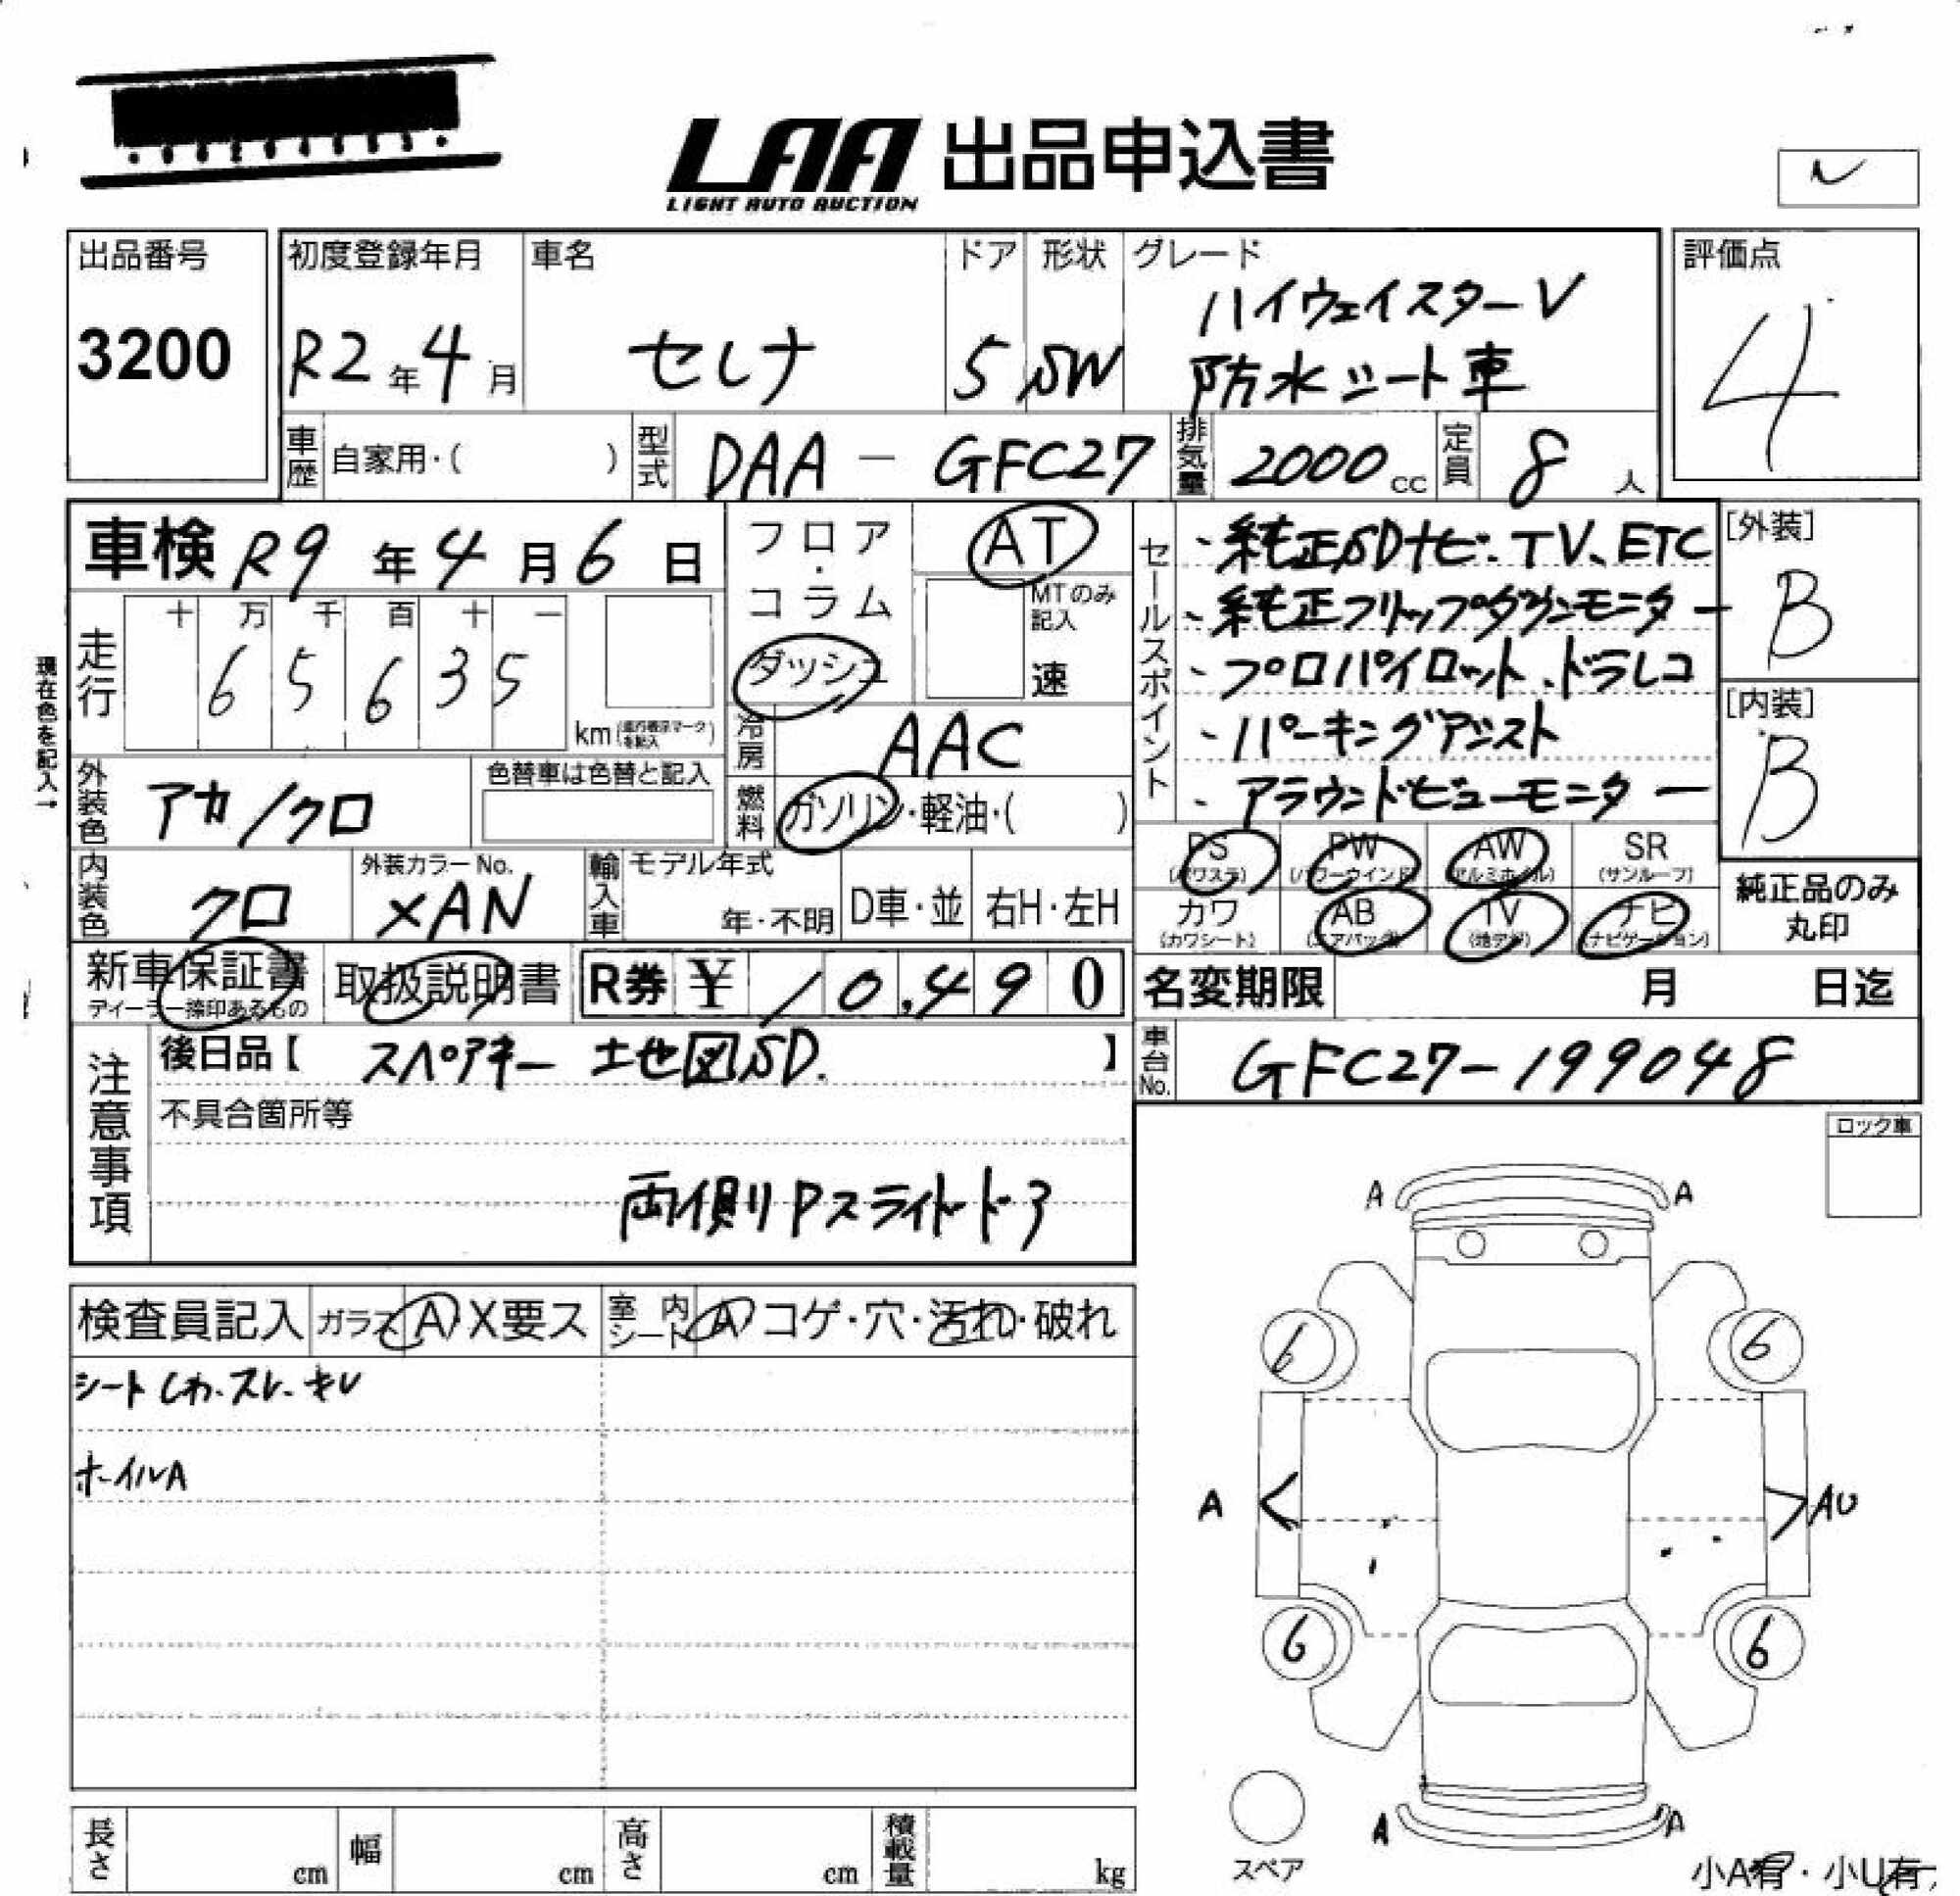 LAA 出品申込書
LIGHT AUTO AUCTION
出品番号
3200
初度登録年月
R2年4月
車名
セレナ
ドア
5
形状
SW
グレード
ハイウェイスターV
防水シート車
評価点
4
車歴 自家用・( )
型式 DAA - GFC27
排気量 2000cc
定員 8人
車検 R9年4月6日
フロア・コラム
ダッシュ
AT
MTのみ記入
速
走行
十 万 千 百 十 一
6 5 6 3 5
km
現在色を記入→
冷房 AAC
セールスポイント
・純正SDナビ・TV、ETC
・純正フリップダウンモニター
・プロパイロット、ドラレコ
・パーキングアシスト
・アラウンドビューモニター
[外装]
B
[内装]
B
外装色 アカ/クロ
色替車は色替と記入
燃料 ガソリン・軽油・( )
内装色 クロ
外装カラーNo.
XAN
輸入車 モデル年式
年・不明
D車・並 右H・左H
PS (パワステ)
PW (パワーウインド)
AW (アルミホイル)
SR (サンルーフ)
カワ (カワシート)
AB (エアバッグ)
TV (地デジ)
ナビ (ナビゲーション)
純正品のみ
丸印
新車保証書
ディーラー捺印あるもの
取扱説明書
R券 ¥ 10,490
名変期限 月 日迄
注意事項
後日品【 スペアキー 地図SD. 】
車台No. GFC27-199048
不具合箇所等
両側Pスライドドア
ロック車
検査員記入
ガラス A X要ス
室内シート A コゲ・穴・汚れ・破れ
シートしわ・スレ・キレ
ホイルA
A A
6 6
A AU
6 6
A A
スペア
小A有・小U有
長さ cm
幅 cm
高さ cm
積載量 kg